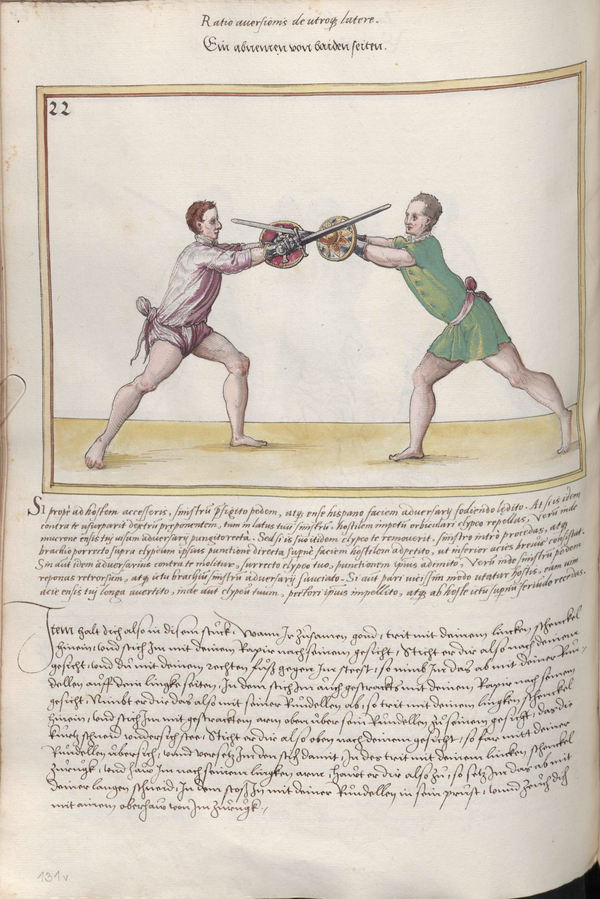 Ratio auersionis de utroq; latere.
Ein abnemen von baiden seiten.
22
Si propè ad hostem accesseris, sinistrũ p̃figito pedem, atq; ense hispano faciem aduersarÿ fodiendo lędito. At si is idem
contra te usurparit dextrũ præponentem, tum in latus tuũ sinistrũ hostilem impetũ orbiculari clypeo repellas, Verũ inde
mucrone ensis tuj uisum aduersarÿ pungito rectà. Sed si is suo itidem clypeo te remouerit, sinistro intrò procedas, atq;
brachio porrecto supra clypeum ipsius punctione directa supnè faciem hostilem adpetito, ut inferior acies breuis consistat.
Sin aut idem aduersarius contra te molitur, surrecto clypeo tuo, punctionem ipsius adimito, Verũ mòx sinistrũ pedem
reponas retrorsum, atq; ictu brachiũ sinistrũ aduersarÿ sauciato. Si aut pari uicissim modo utatur hostis, eam um
acie ensis tuj longa auertito, inde aut clypeũ tuum, pectori ipsius impellito, atq; ab hoste ictu supnè feriundo recedas.
Item halt dich also in disem stuck, Wann Ir zusamen gond, trit mit deinem lincken schenckel
hinein, vnd stich Im mit deinem Rapir nach seinem gesicht, Sticht er dir also nach deinem
gesicht, vnd du mit deinem rechten fuß gegen Im steest, so nimb Im das ab mit deiner Run,,
dellen auff dein lingke seiten, In dem stich Im auch gestracks mit deinem Rapir nach seinem
gesicht. Nimbt er dir das also mit seiner Rundellen ab, so trit mit deinem lingken schenckel
hinein, vnd stich Im mit gestracktem arm oben über sein Rundellen zu seinem gesicht, das die
kurtz schneid vndersich stee, Sticht er dir also oben nach deinem gesicht, so far mit deiner
Rundellen übersich, vnd versetz Im den stich damit, In des trit mit deinem lincken schenckel
zurugk, vnd haw Im nach seinem lingken arm, Hawt er dir also zu, so setz Im das ab mit
deiner langen schneid, In dem stos Im mit deiner Rundellen in sein prust, vnnd zeuch dich
mit ainem oberhaw von Im zurugk.
131v